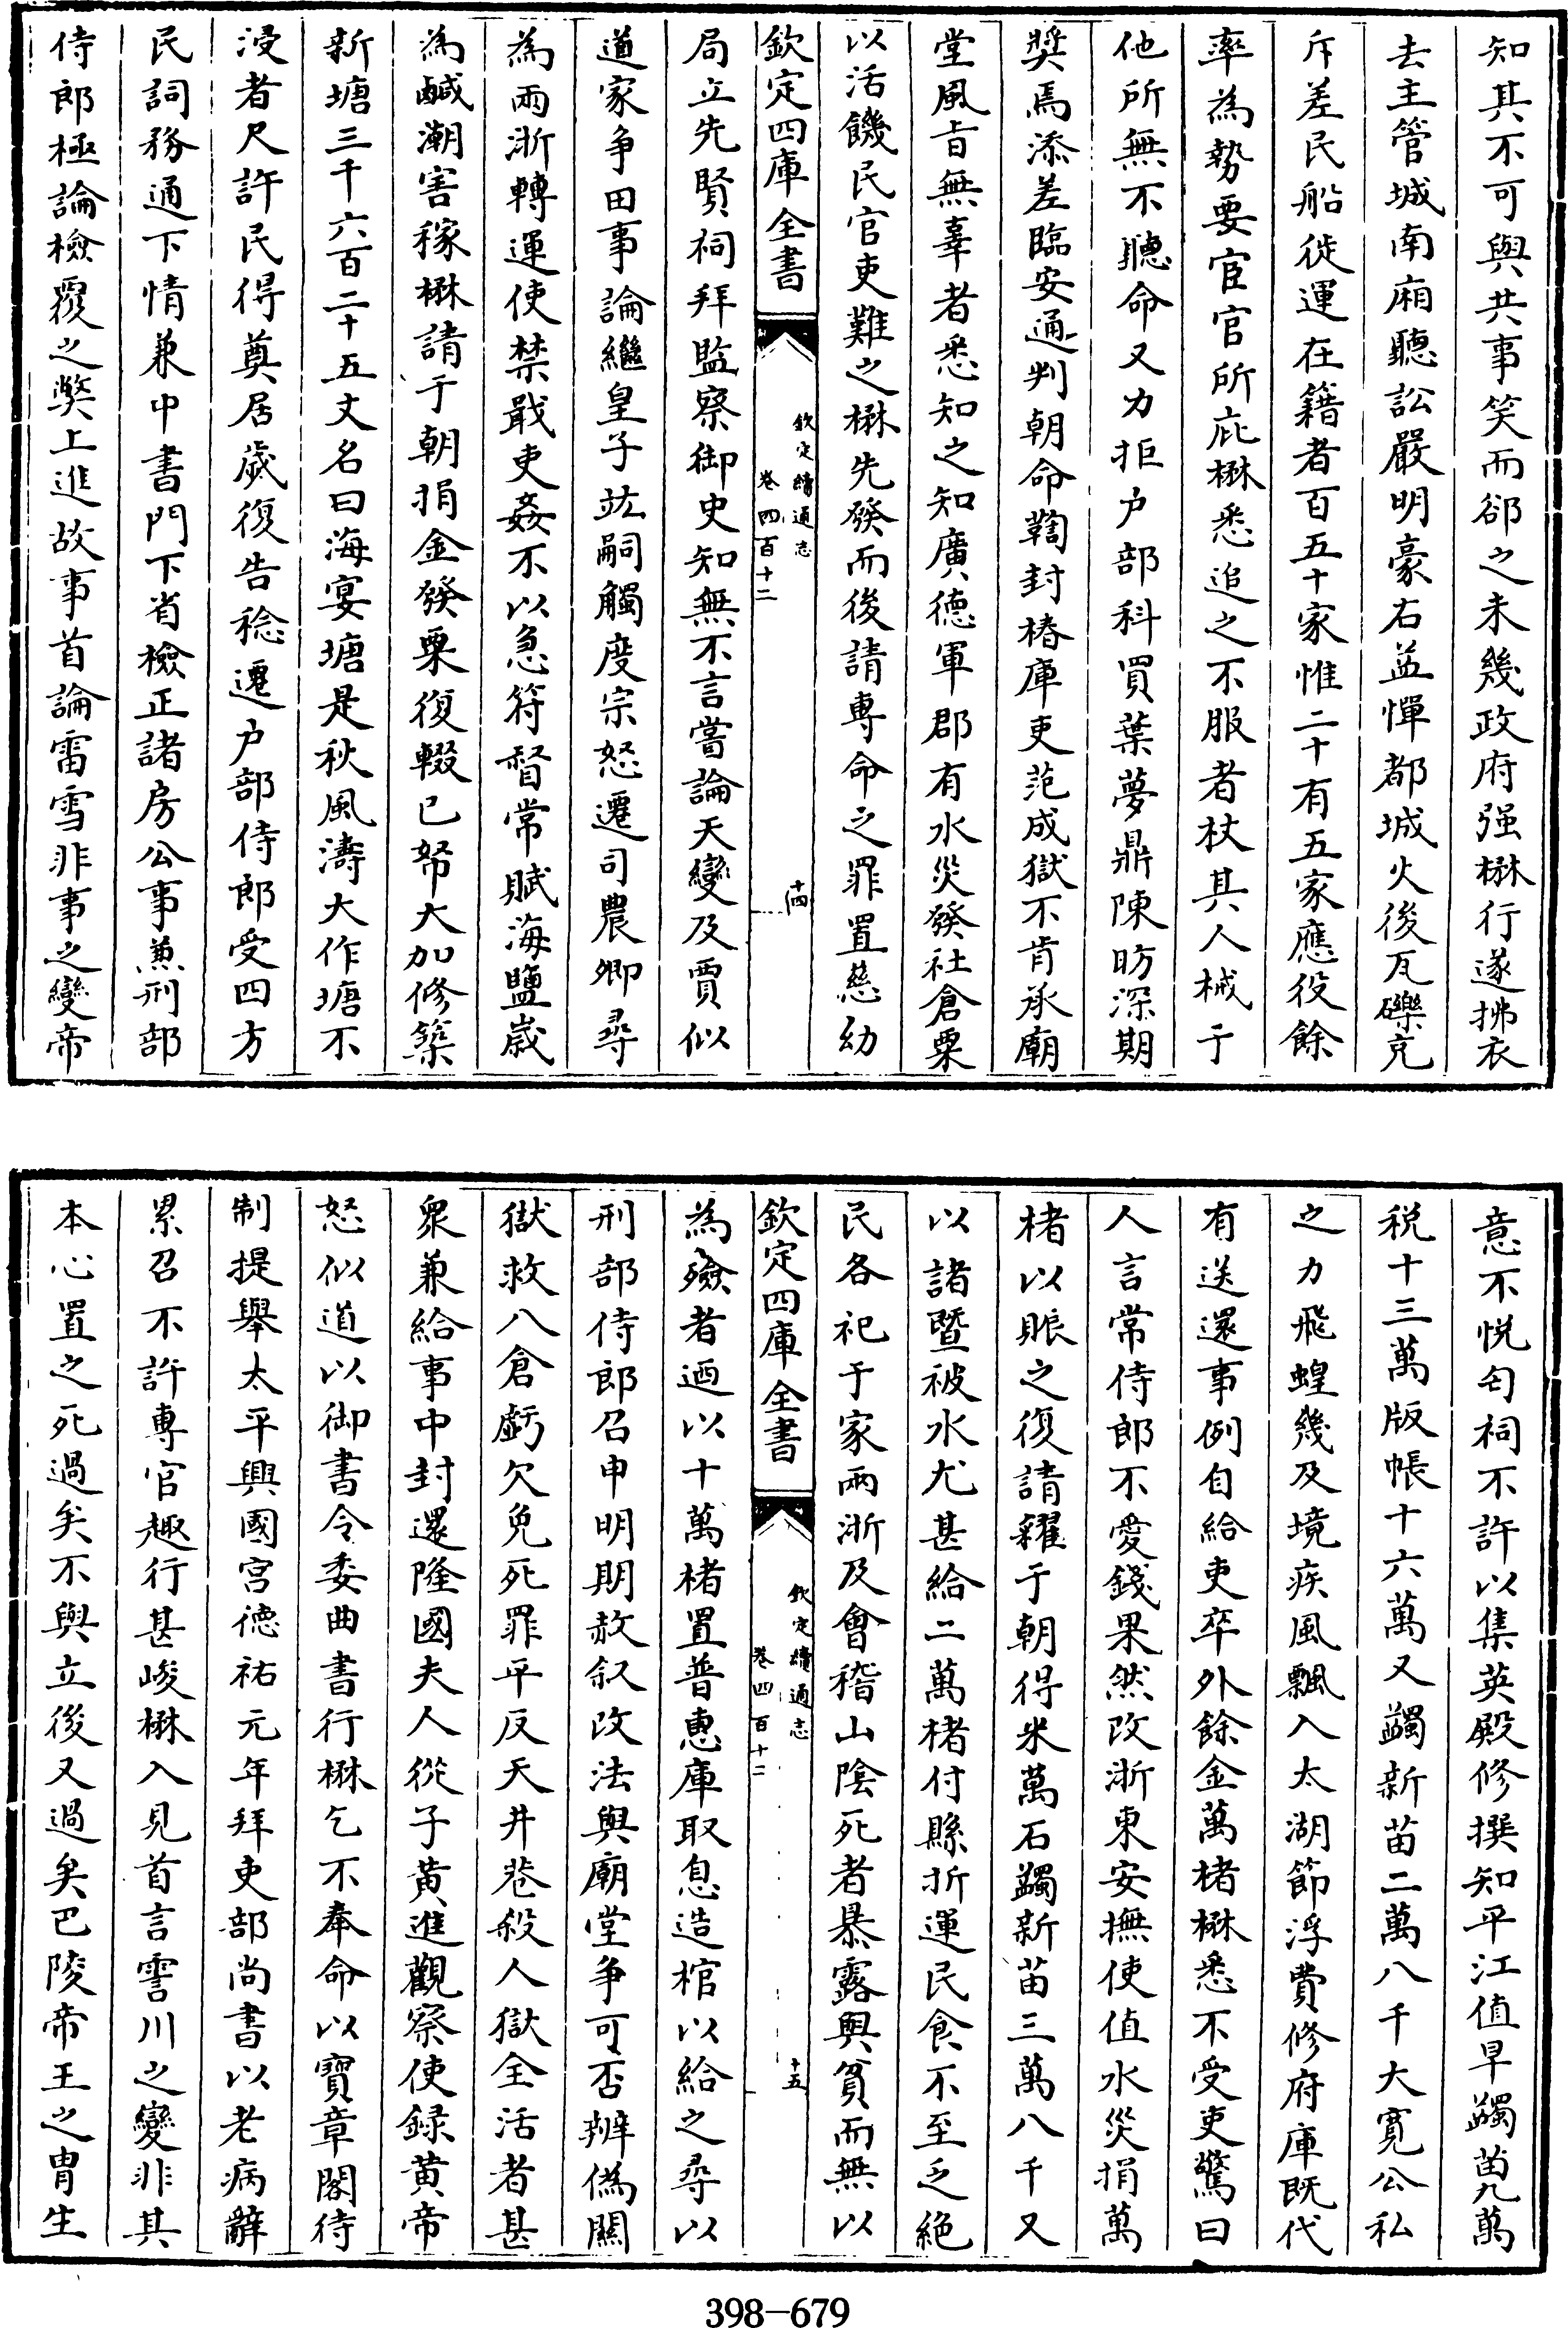 知其不可與共事笑而郤之未幾政府强楙行遂拂衣
去主管城南廂聽訟嚴明豪右益憚都城火後瓦礫充
斥差民船徙運在籍者百五十家惟二十有五家應役餘
率為勢要宦官所庇楙悉追之不服者杖其人械于
他所無不聽命又力拒户部科買葉夢鼎陳昉深期
奬焉添差臨安通判朝命鞫封樁庫吏范成獄不肯承廟
堂風㫖無辜者悉知之知廣德軍郡有水災發社倉粟
以活饑民官吏難之楙先發而後請專命之罪置慈幼
欽定四庫全書
欽定續通志
卷四百十二
十四
局立先賢祠拜監察御史知無不言嘗論天變及賈似
道家争田事論繼皇子竑嗣觸度宗怒遷司農卿尋
為兩浙轉運使禁戢吏姦不以急符督常賦海鹽歲
為鹹潮害稼楙請于朝捐金發粟復輟已帑大加修築
新塘三千六百二十五丈名曰海宴塘是秋風濤大作塘不
浸者尺許民得奠居歲復告稔遷户部侍郎受四方
民詞務通下情兼中書門下省檢正諸房公事兼刑部
侍郎極論檢覆之獘上進故事首論雷雪非事之變帝
意不悦匄祠不許以集英殿修撰知平江值旱蠲苗九萬
税十三萬版帳十六萬又蠲新苗二萬八千大寬公私
之力飛蝗幾及境疾風飄入太湖節浮費修府庫既代
有送還事例自給吏卒外餘金萬楮楙悉不受吏驚曰
人言常侍郎不愛錢果然改浙東安撫使值水災捐萬
楮以賑之復請糴于朝得米萬石蠲新苗三萬八千又
以諸暨被水尤甚給二萬楮付縣折運民食不至乏絶
民各祀于家兩浙及會稽山隂死者暴露與貧而無以
欽定四庫全書
欽定續通志
卷四百十二
十五
為殮者廼以十萬楮置普惠庫取息造棺以給之尋以
刑部侍郎召申明期赦叙改法與廟堂争可否辨偽關
獄救八倉虧欠免死罪平反天井巷殺人獄全活者甚
衆兼給事中封還隆國夫人從子黄進觀察使録黄帝
怒似道以御書令委曲書行楙乞不奉命以寶章閣待
制提舉太平興國宫德祐元年拜吏部尚書以老病辭
累召不許専官趣行甚峻楙入見首言霅川之變非其
本心置之死過矣不與立後又過矣巴陵帝王之胄生
398-679